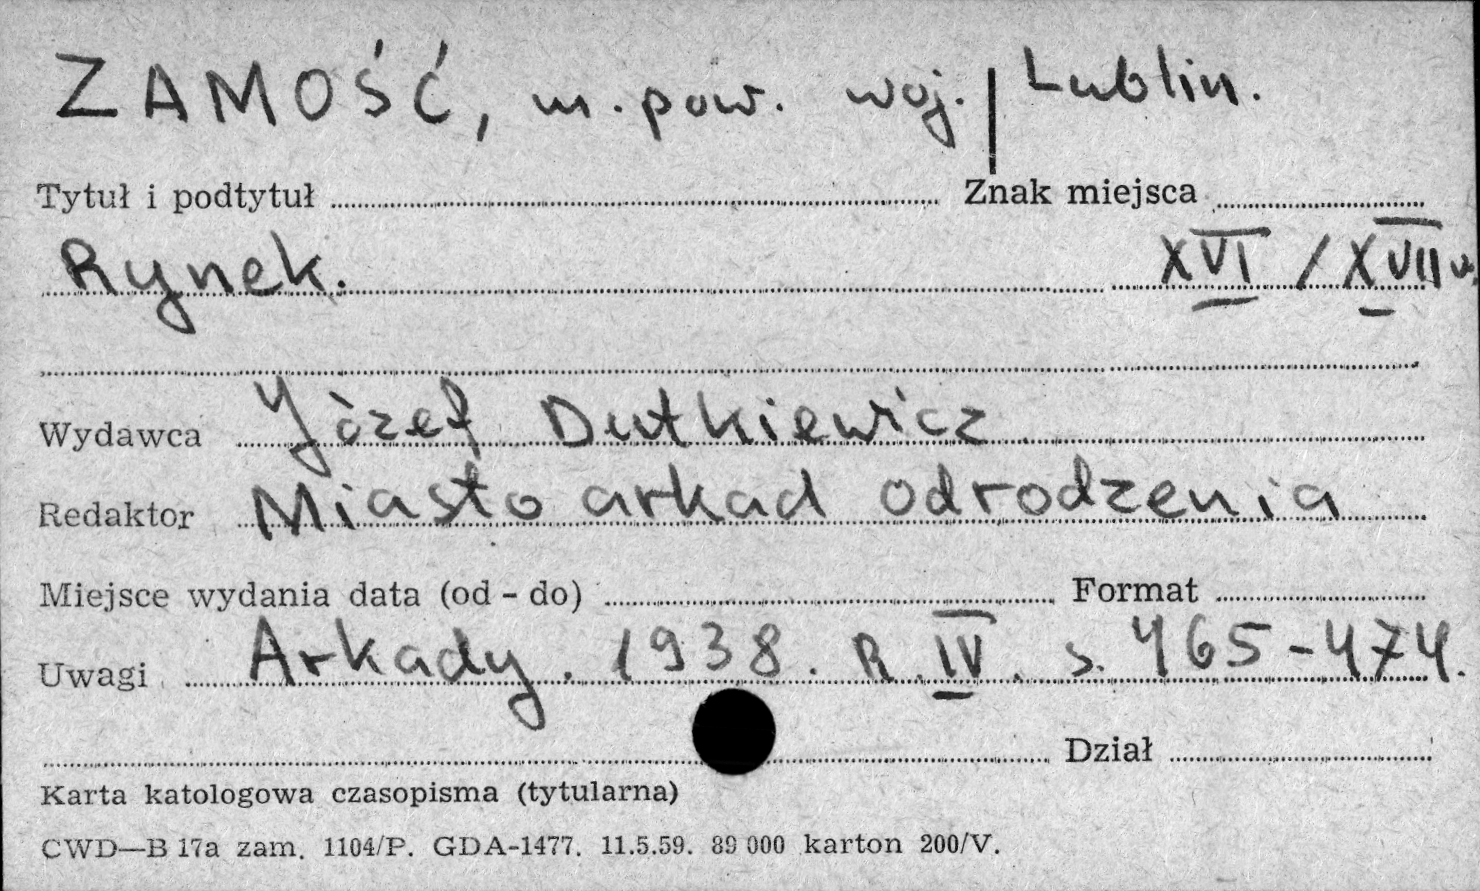 ZAMOŚĆ, m. pow. woj. | Lublin.
Tytuł i podtytuł Znak miejsca
Rynek. XVI / XVII w.
Wydawca Józef Dutkiewicz
Redaktor Miasto arkad odrodzenia
Miejsce wydania data (od - do) Format
Uwagi Arkady. 1938. R. IV. s. 465-474.
Dział
Karta katologowa czasopisma (tytularna)
CWD—B 17a zam. 1104/P. GDA-1477. 11.5.59. 89 000 karton 200/V.